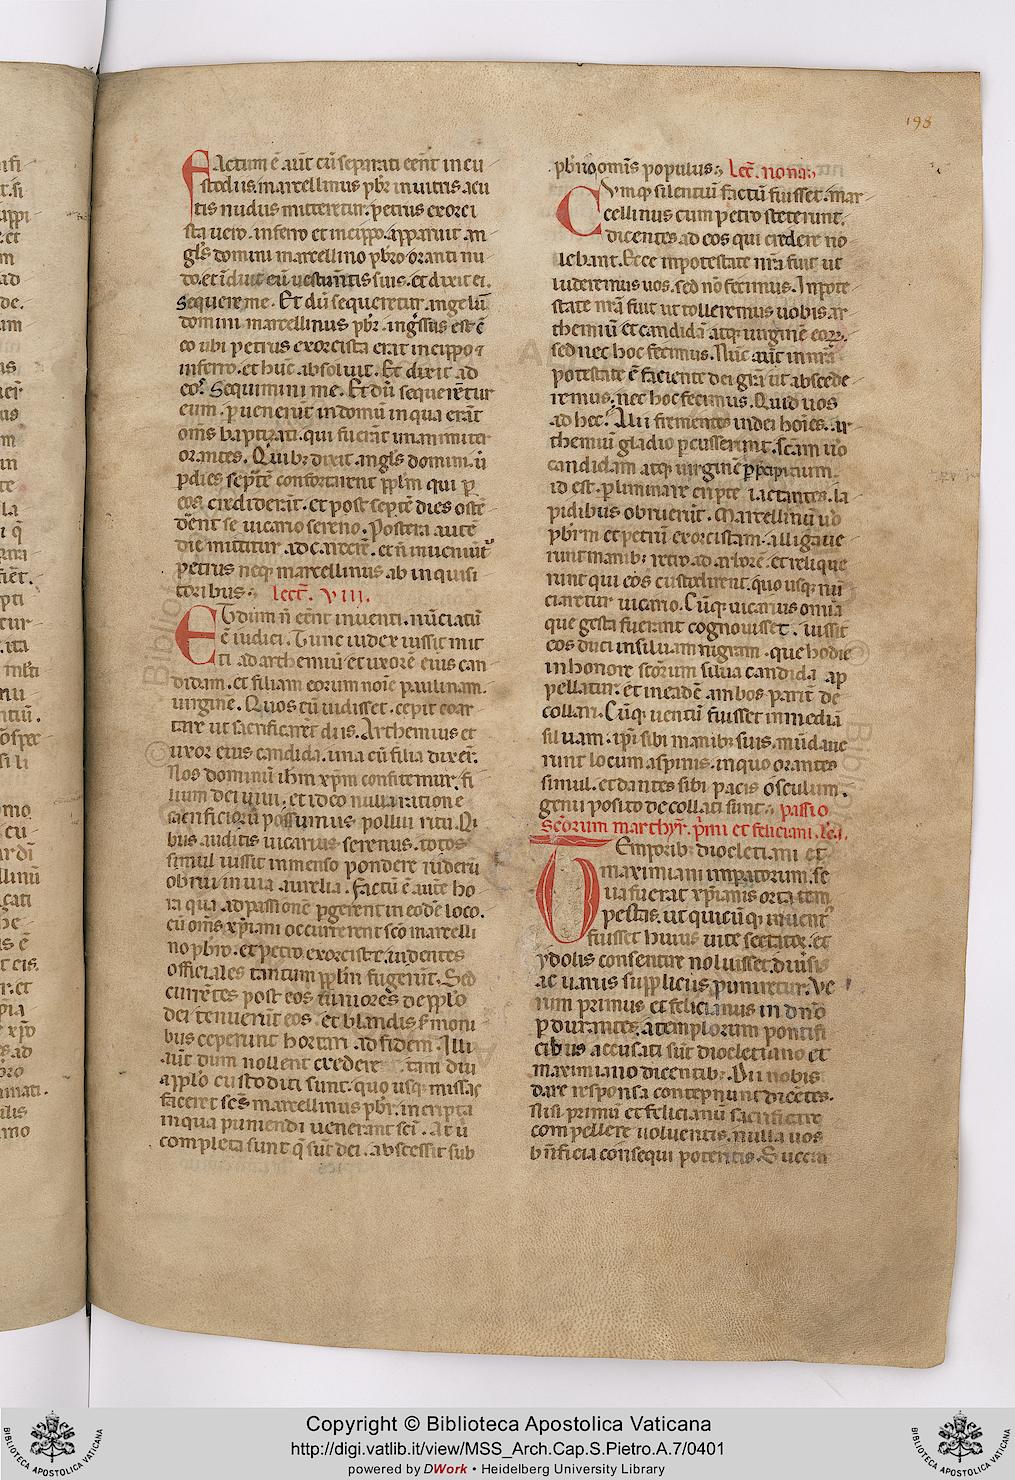 198
Factum ē aūt cū separati eēnt in cu
stodiis. marcellinus pbr in uitris acu
tis nudus mitteretur. petrus exorci
sta uero. in ferro et in cippo. apparuit an
gls domini marcellino pbro oranti nu
do. et īduit eū uestimtis suis. et dixit ei.
Sequere me. Et dū sequeretur angelū
domini marcellinus pbr. ingressus est ē
eo ubi petrus exorcista erat in cippo
in ferro. et hūc absoluit. Et dixit ad
eos. Sequimini me. Et dū sequerētur
eum. puenerūt in domū in qua erāt
omīs baptizati. qui fuerāt unanimiter
orantes. Quibz dixit angls domini. ut
p dies septē confortarent pplm qui p
eos crediderāt. et post septē dies oste
dēnt se uicario sereno. Postera autē
die mittitur ad carcerē. et ñ inueniūt
petrus neqz marcellinus ab inquisi
toribus. Lect. VIII.
Et dum ñ eēnt inuenti. nūciatū
ē iudici. Tunc iudex iussit mit
ti ad archemiū et uxorē eius can
didam. et filiam eorum noīe paulinam.
uirginē. Quos cū uidisset. cepit coar
tare ut sacrificarēt diis. Archemius et
uxor eius candida. una cū filia dixeīt.
Nos dominū ihm xpm confitemur. fi
lium dei uiui. et ideo nulla ratione
sacrificiorū possumus pollui ritu. Qi
bus auditis uicarius serenus. totos
simul iussit inmenso pondere ruderū
obrui in uia aurelia. Factū ē autē ho
ra qua ad passionē pgerent in eodē loco.
cū omīs xpiani occurrerent sco marcelli
no pbro. et petro exorciste. uidentes
officiales tantum pplm fugerūt. Sed
currētes post eos iuniores de pplo
dei tenuerūt eos et blandis smoni
bus ceperunt hortari ad fidem. Illi
aūt dum nollent credere tam diu
a pplo custoditi sunt. quo usqz missas
faceret scs marcellinus pbr. in cripta
in qua puniendi uenerant sci. At ū
completa sunt q sūt dei. abscessit sub
pbro omīs populus. Lect. nona.
Cumqz silentiū factū fuisset. mar
cellinus cum petro steterunt.
dicentes ad eos qui credere no
lebant. Ecce in potestate nrā fuit ut
luderemus uos. sed nō fecimus. In pote
state nrā fuit ut tolleremus uobis ar
themiū et candidā atqz uirginē eorz.
sed nec hoc fecimus. Nūc aūt in nrā
potestate ē faciente dei gra ut abscede
remus. nec hoc fecimus. Quid uos
ad hec. Alii frementes uidei hoīes. ar
themiū gladio pcusserunt. scam uō
candidam atqz uirginē p pcipicium
id est. p liminare cripte iactantes. la
pidibus obruerūt. Marcellinū uō
pbrm et petrū exorcistam. alligaue
runt manibz retro ad arborē. et relique
runt qui eōs custodirent. quo usqz nū
ciaretur uicario. Cūqz uicarius omīa
que gesta fuerant cognouisset. iussit
eos duci in siluam nigram. que hodie
in honore scōrum silua candida ap
pellatur. et in eadē ambos parit de
collari. Cūqz uentū fuisset in mediā
siluam. ipi sibi manibz suis. mūdaue
runt locum a spinis. in quo orantes
simul. et dantes sibi pacis osculum.
genu posito decollati sunt. passio
scōrum marthyr. primi et feliciani. lc̄ i.
Temporibz diocletiani et
maximiani impatorum. se
ua fuerat xpianis orta tem
pestas. ut quicūqz inuentus
fuisset huius uite sectator. et
ydolis consentire noluisset. diūsis
ac uariis suppliciis puniretur. Ve
rum primus et felicianus in dnō
pdurantes. a templorum pontifi
cibus accusati sūt diocletiano et
maximiano dicentibz. Dii nobis
dare responsa contepnunt dicētes.
Nisi primū et felicianū sacrificare
compellere uolueritis. nulla uos
bñficia consequi poteritis. Succen
Copyright © Biblioteca Apostolica Vaticana
http://digi.vatlib.it/view/MSS_Arch.Cap.S.Pietro.A.7/0401
powered by DWork • Heidelberg University Library
BIBLIOTECA APOSTOLICA VATICANA
BIBLIOTECA APOSTOLICA VATICANA